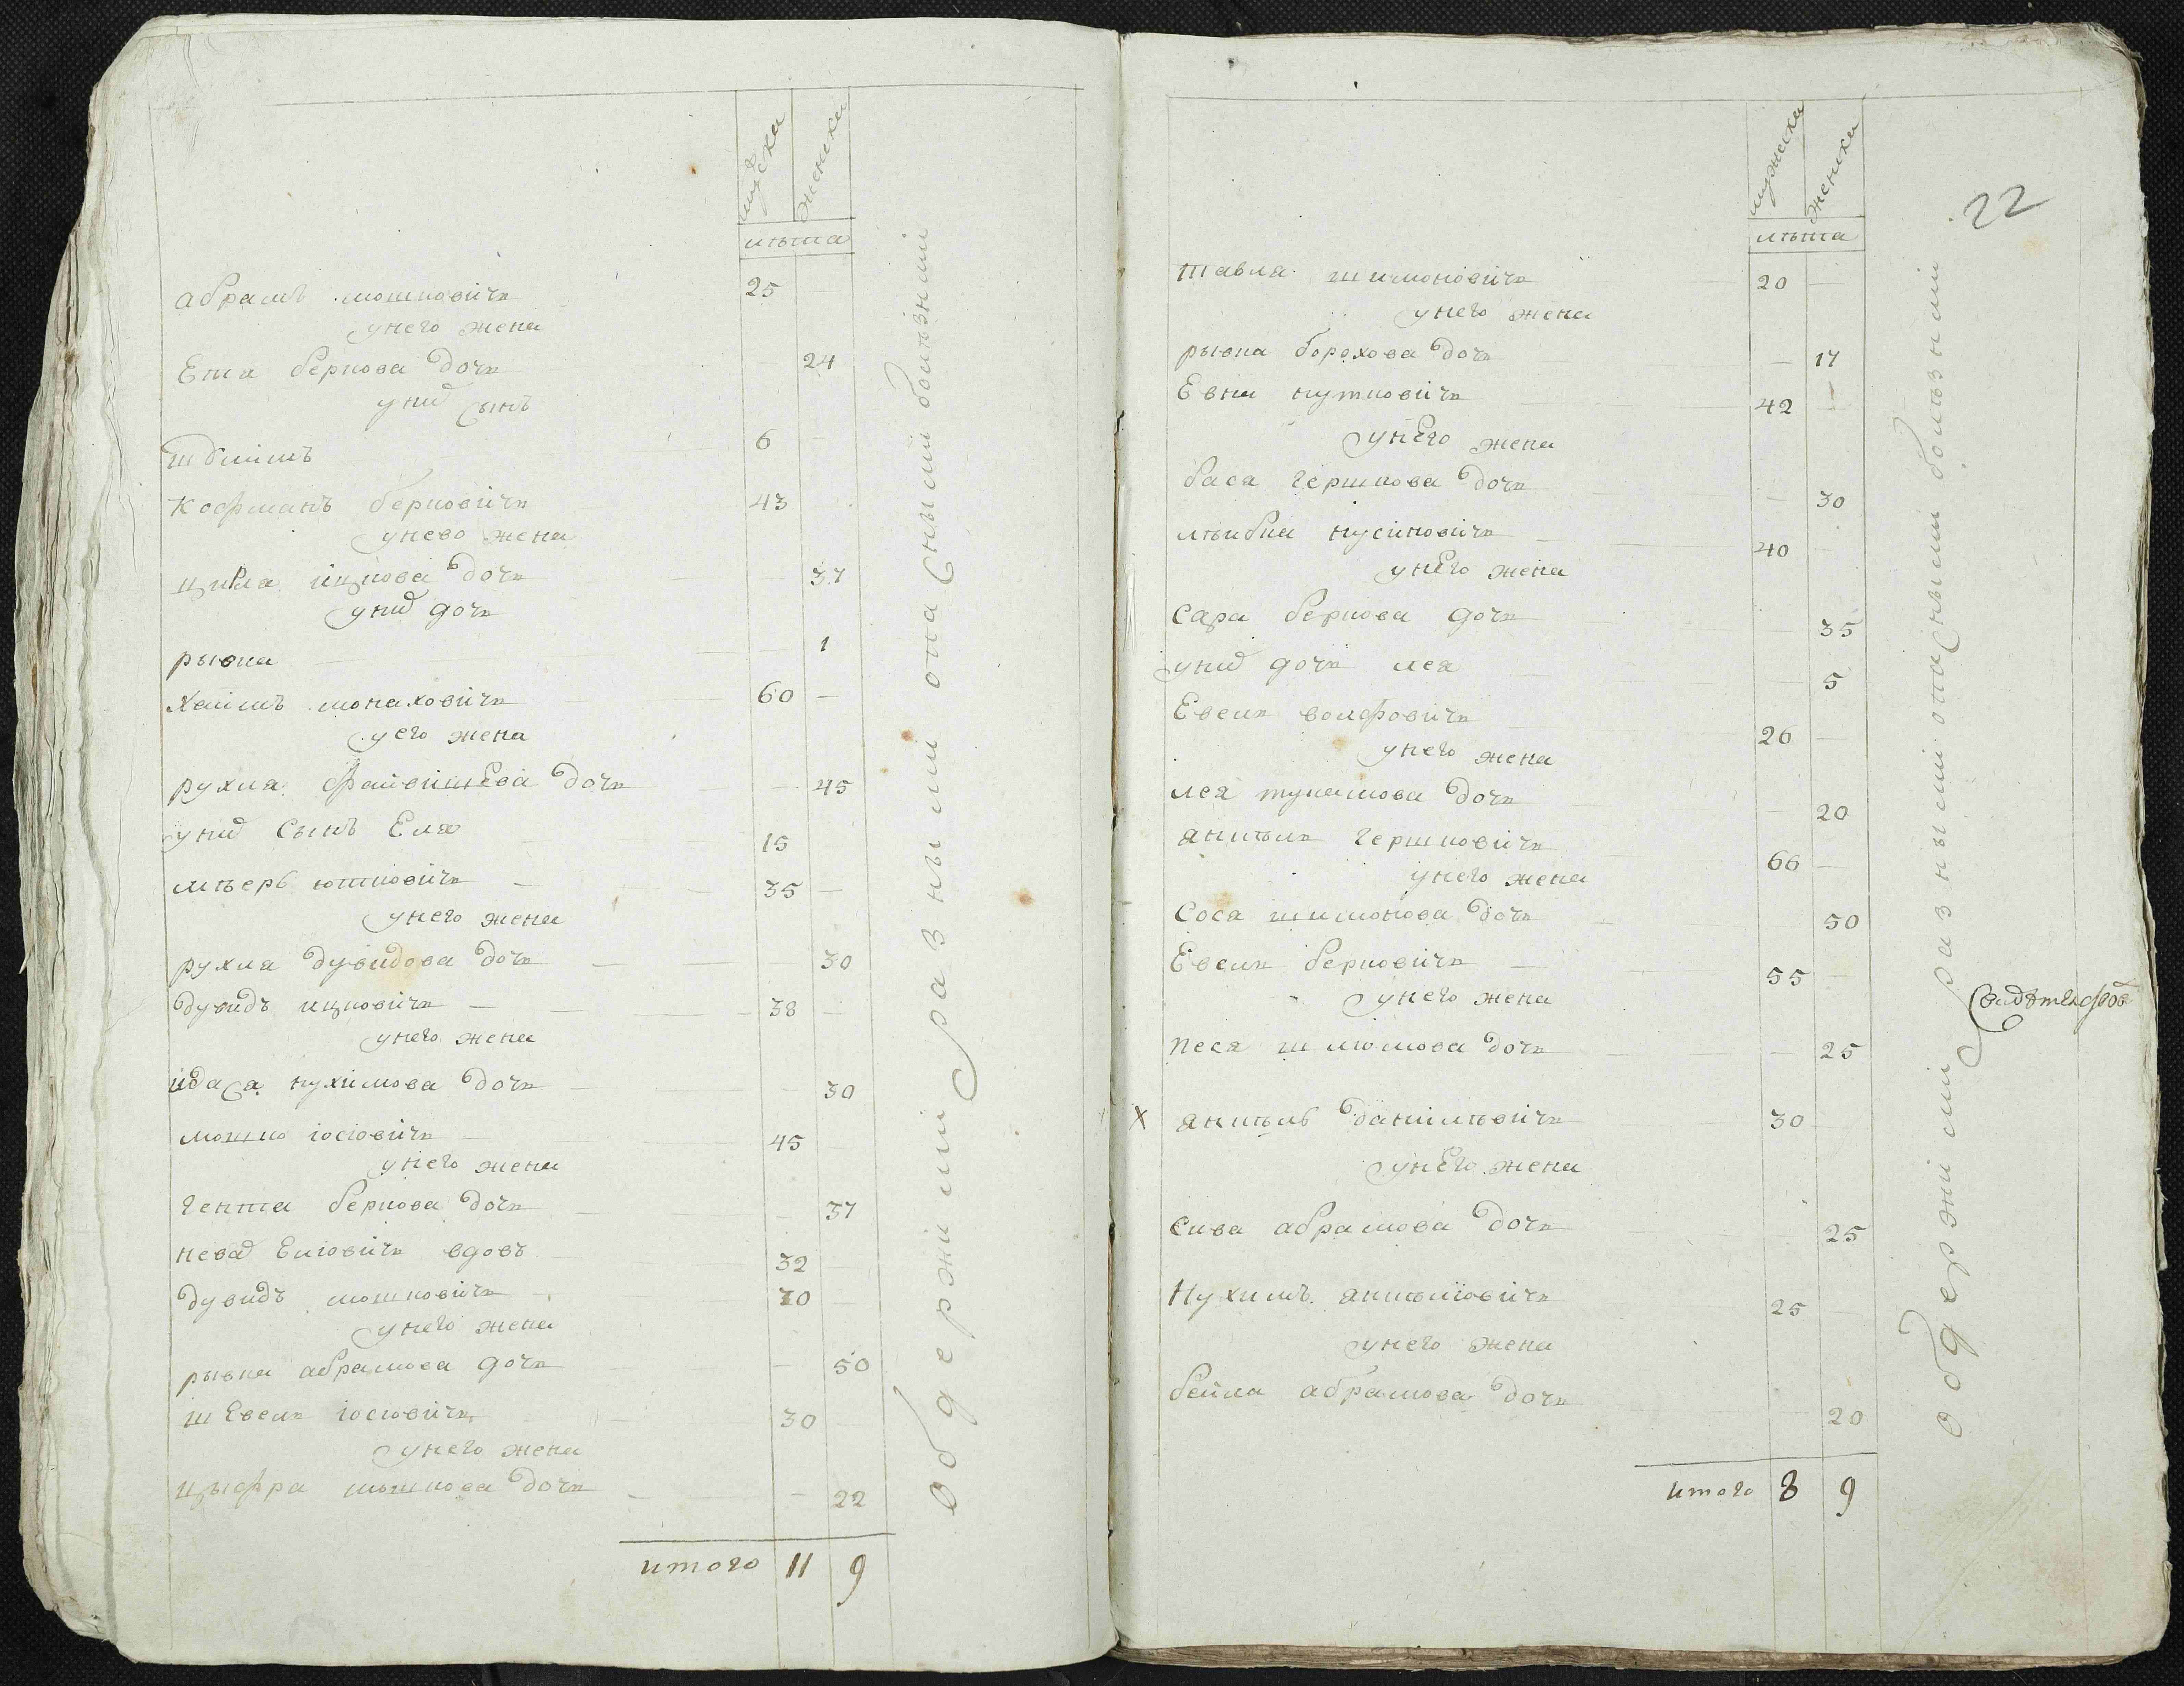 мужска женска
лѣта
абрамъ мошковичь 25
унего жена
Етя беркова дочь 24
унид сынъ
шліомъ 6
кофманъ берковичь 43
унево жена
цивля ицкова дочь 37
унид дочь
рывка 1
хаимъ монаховичь 60
уего жена
рухля файвишева дочь 45
унид сынъ Еля 15
мѣеръ ютковичь 35
унего жена
рухля дувидова дочь 30
дувидъ ицковичь 38
унего жена
идася нухимова дочь 30
мошко іосіовичь 45
унего жена
гентa беркова дочь 37
Еліовичь вдовъ 32
дувидъ мошковичь 70
унего жена
рывка абрамова дочь 50
шевель іосіовичь 30
унего жена
цыфра мошкова дочь 22
итого 11 9
Одержими разными опасными болѣзнми
22
мужеска женска
лѣта
тавля шимоновичь 20
унего жена
рывка борохова дочь 17
Евна нутковичь 42
унего жена
бася гершкова дочь 30
лѣибка нусиновичь 40
унего жена
сара беркова дочь 35
унид дочь лея 5
Евель волфовичь 26
унего жена
лея дочь 20
янкѣль гершковичь 66
унего жена
Сося шимонова дочь 50
Евель берковичь 55
унего жена
песя шліомова дочь 25
х янкѣль данилѣвичь 30
унего жена
сива абрамова дочь 25
Нухимъ янкѣліовичь 25
унего жена
бейла абрамова дочь 20
итого 8 9
обдержими разными опасными болѣзнми